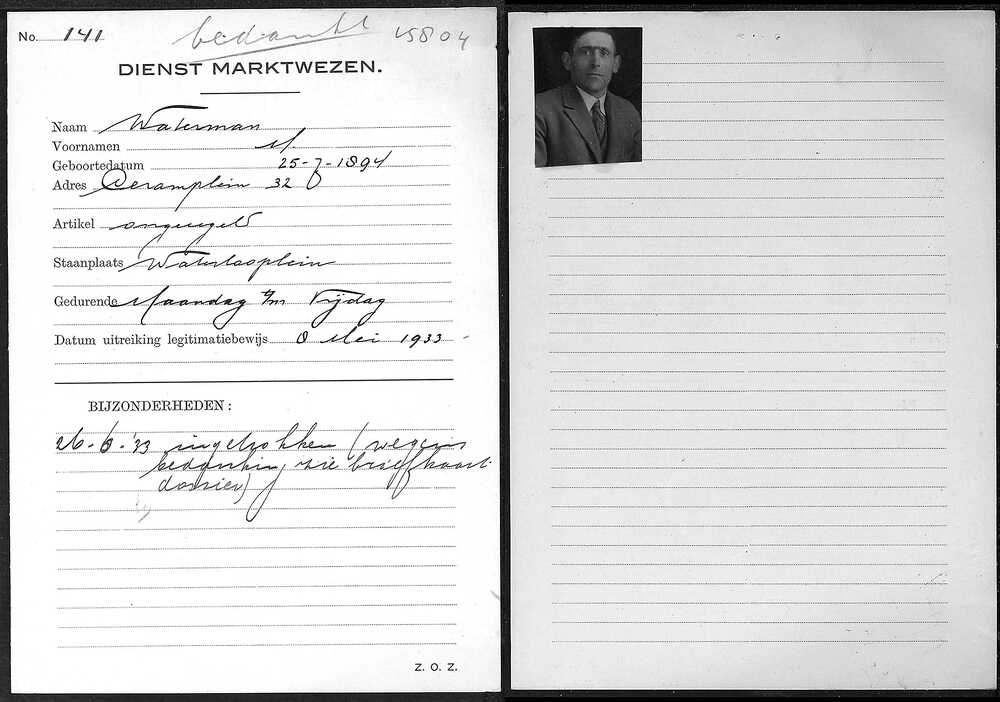 No. 141 bedankt 15804
DIENST MARKTWEZEN.
Naam Waterman
Voornamen M.
Geboortedatum 25-7-1894
Adres Ceramplein 32
Artikel ongeregeld
Staanplaats Waterlooplein
Gedurende Maandag t/m Vrijdag
Datum uitreiking legitimatiebewijs 8 Mei 1933
BIJZONDERHEDEN:
26-6-'33 ingetrokken (wegens
bedanking, zie briefkaart
dossier)
Z. O. Z.